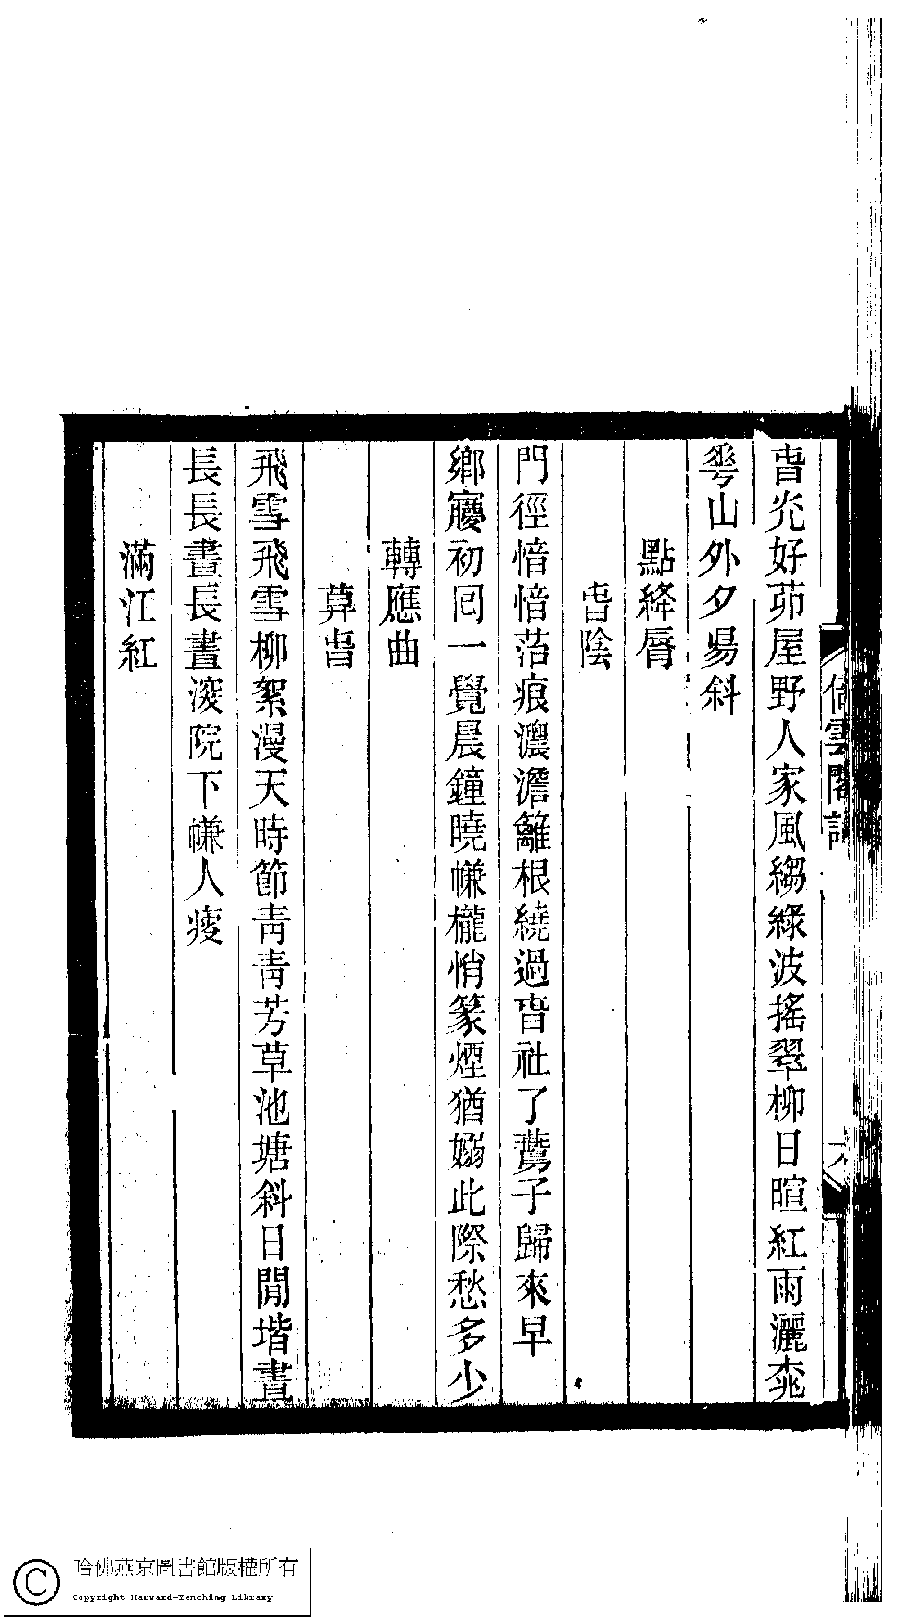 旾灮好茆屋野人家風縐綠波搖翠柳日暄紅雨灑桃
𠌶山外夕昜斜
點絳脣
旾陰
門徑愔愔菭痕濃澹籬根繞過旾社了鷰子歸來早
鄉㝱初囘一覺晨鐘曉㡘櫳悄篆煙猶嫋此際愁多少
轉應曲
莫旾
飛雪飛雪柳絮漫天時節靑靑芳草池塘斜日閒堦晝
長長晝長晝湥院下㡘人瘦
滿江紅
倚雲閣詞
六
哈佛燕京圖書館版權所有
Copyright Harvard-Yenching Library